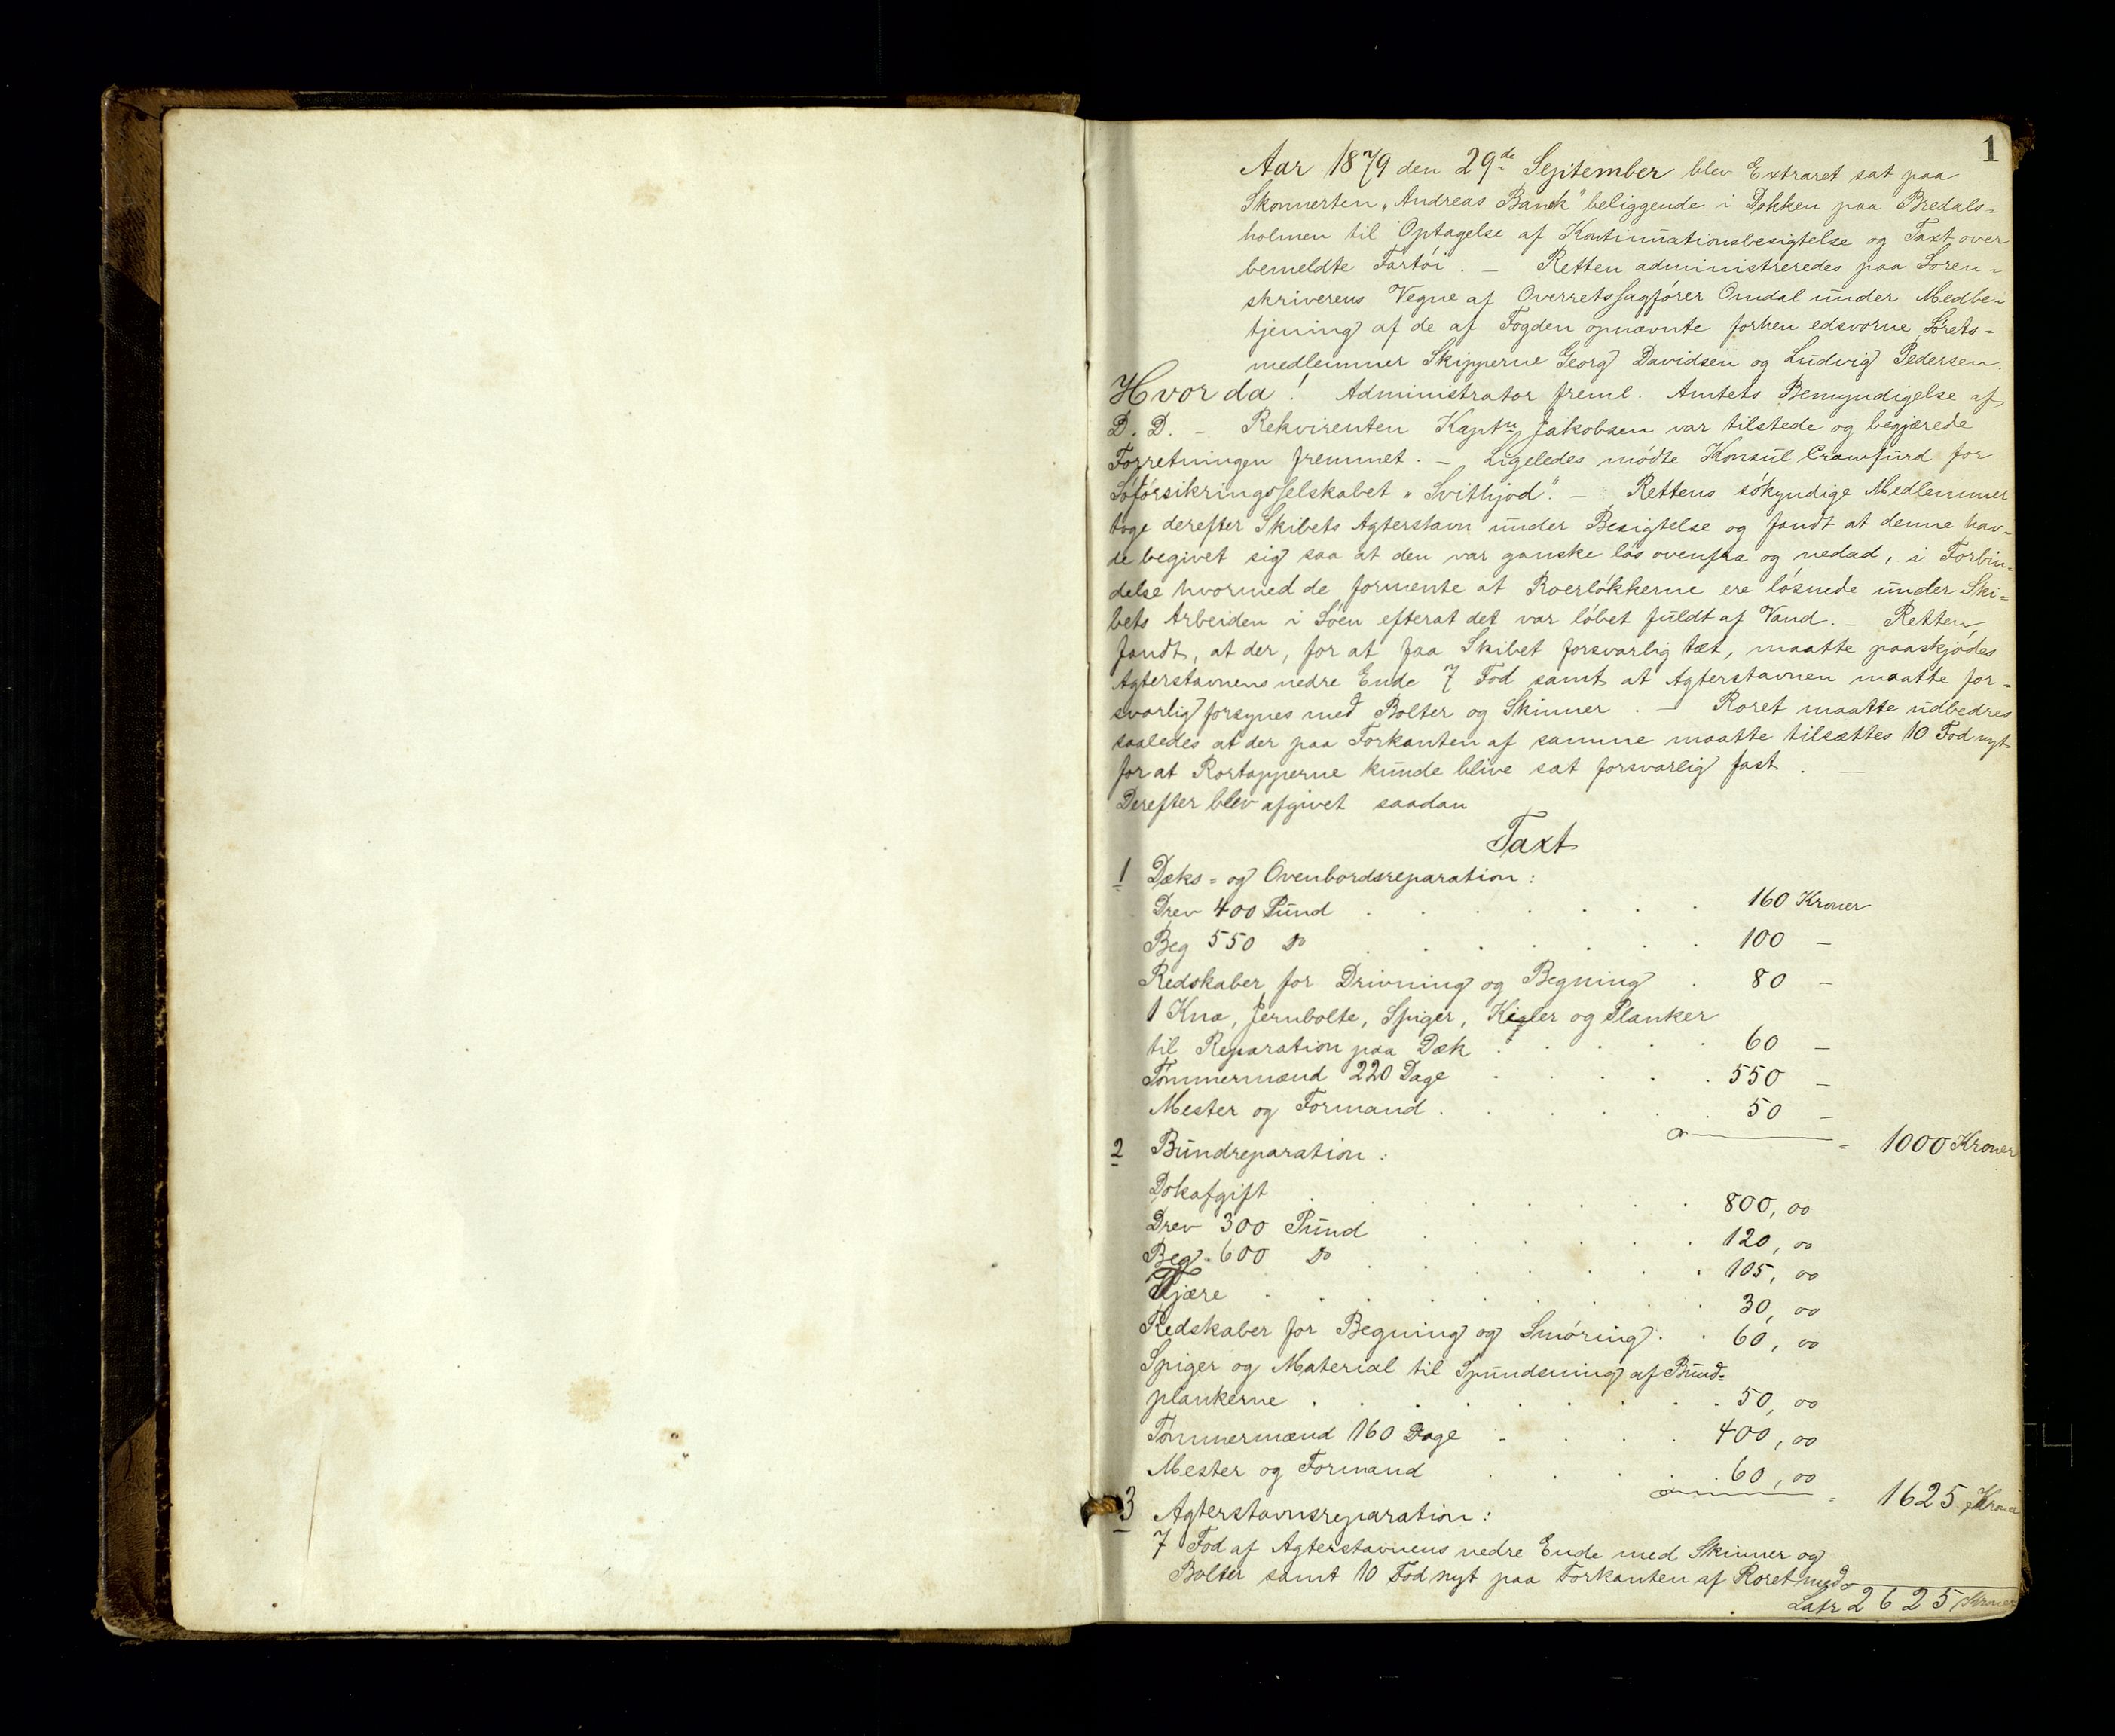 1
Aar 1879 den 29de September blev Extraret sat paa
Skonnerten „Andreas Banck" beliggende i Dokken paa Bredals-
holmen til Optagelse af Kontinuationsbesigtelse og Taxt over
bemeldte Fartöi. — Retten administreredes paa Soren-
skriverens Vegne af Overretssagförer Omdal under Medbe-
tjening af de af Fogden opnævnte forhen edsvorne Sörets-
medlemmer Skipperne Georg Davidsen og Ludvig Pedersen.
Hvorda! Administrator freml. Amtets Bemyndigelse af
D. D. — Rekvirenten Kaptn Jakobsen var tilstede og begjærede
Forretningen fremmet. — Ligeledes mödte Konsul Crawfurd for
Söforsikringsselskabet „Svithjod". — Rettens sökyndige Medlemmer
toge derefter Skibets Agterstavn under Besigtelse og fandt at denne hav-
de begivet sig saa at den var ganske lös ovenfra og nedad, i Forbin-
delse hvormed de formente at Roerlökkerne ere lösnede under Ski-
bets Arbeiden i Söen efterat det var löbet fuldt af Vand. — Retten
fandt, at der, for at faa Skibet forsvarlig tæt, maatte paaskjödes
Agterstavnens nedre Ende 7 Fod samt at Agterstavnen maatte for-
svarlig forsynes med Bolter og Skinner. — Roret maatte udbedres
saaledes at der paa Forkanten af samme maatte tilsættes 10 Fod nyt
for at Rortapperne kunde blive sat forsvarlig fast. —
Derefter blev afgivet saadan
Taxt
1 Dæks- og Ovenbordsreparation:
Drev 400 Pund . . . . . . . 160 Kroner
Beg 550 do . . . . . . . 100 —
Redskaber for Drivning og Begning . 80 —
1 Knæ, Jernbolte, Spiger, Kigler og Planker
til Reparation paa Dæk . . . . . 60 —
Tömmermænd 220 Dage . . . . . 550 —
Mester og Formand . . . . . . 50 —
= 1000 Kroner
2 Bundreparation:
Dokafgift . . . . . . . 800, 00
Drev 300 Pund . . . . . . 120, 00
Beg 600 do . . . . . . . 105, 00
Tjære . . . . . . . . 30, 00
Redskaber for Begning og Smöring . . 60, 00
Spiger og Material til Spundsning af Bund-
plankerne . . . . . . . . 50, 00
Tömmermænd 160 Dage . . . . 400, 00
Mester og Formand . . . . . 60, 00
= 1625 Kroner
3 Agterstavnsreparation:
7 Fod af Agterstavnens nedre Ende med Skinner og
Bolter samt 10 Fod nyt paa Forkanten af Roret med
Latr 2625 Kroner